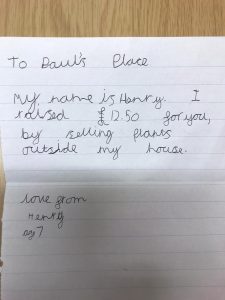 To Paul's Place
My name is Henry. I
raised £12.50 for you,
by selling plants
outside my house.
love from
Henry
age 7